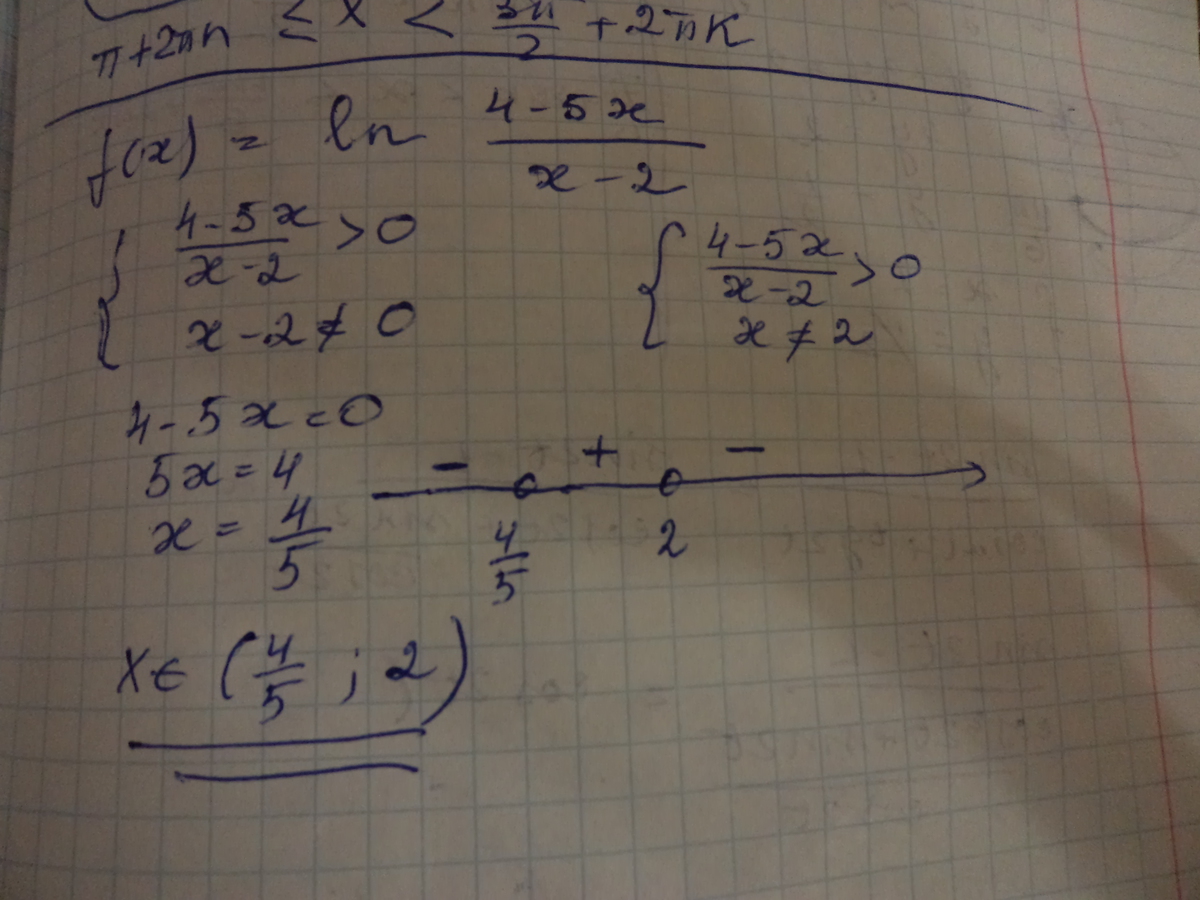 π+2πn ≤ x < 3π/2 + 2πk
f(x) = ln (4-5x)/(x-2)
{ (4-5x)/(x-2) > 0
x-2 ≠ 0
{ (4-5x)/(x-2) > 0
x ≠ 2
4-5x=0
5x=4
x = 4/5
- + -
4/5 2
x∈ (4/5 ; 2)